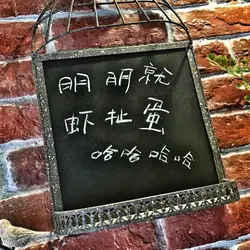 朋朋就
虾扯蛋
哈哈哈哈